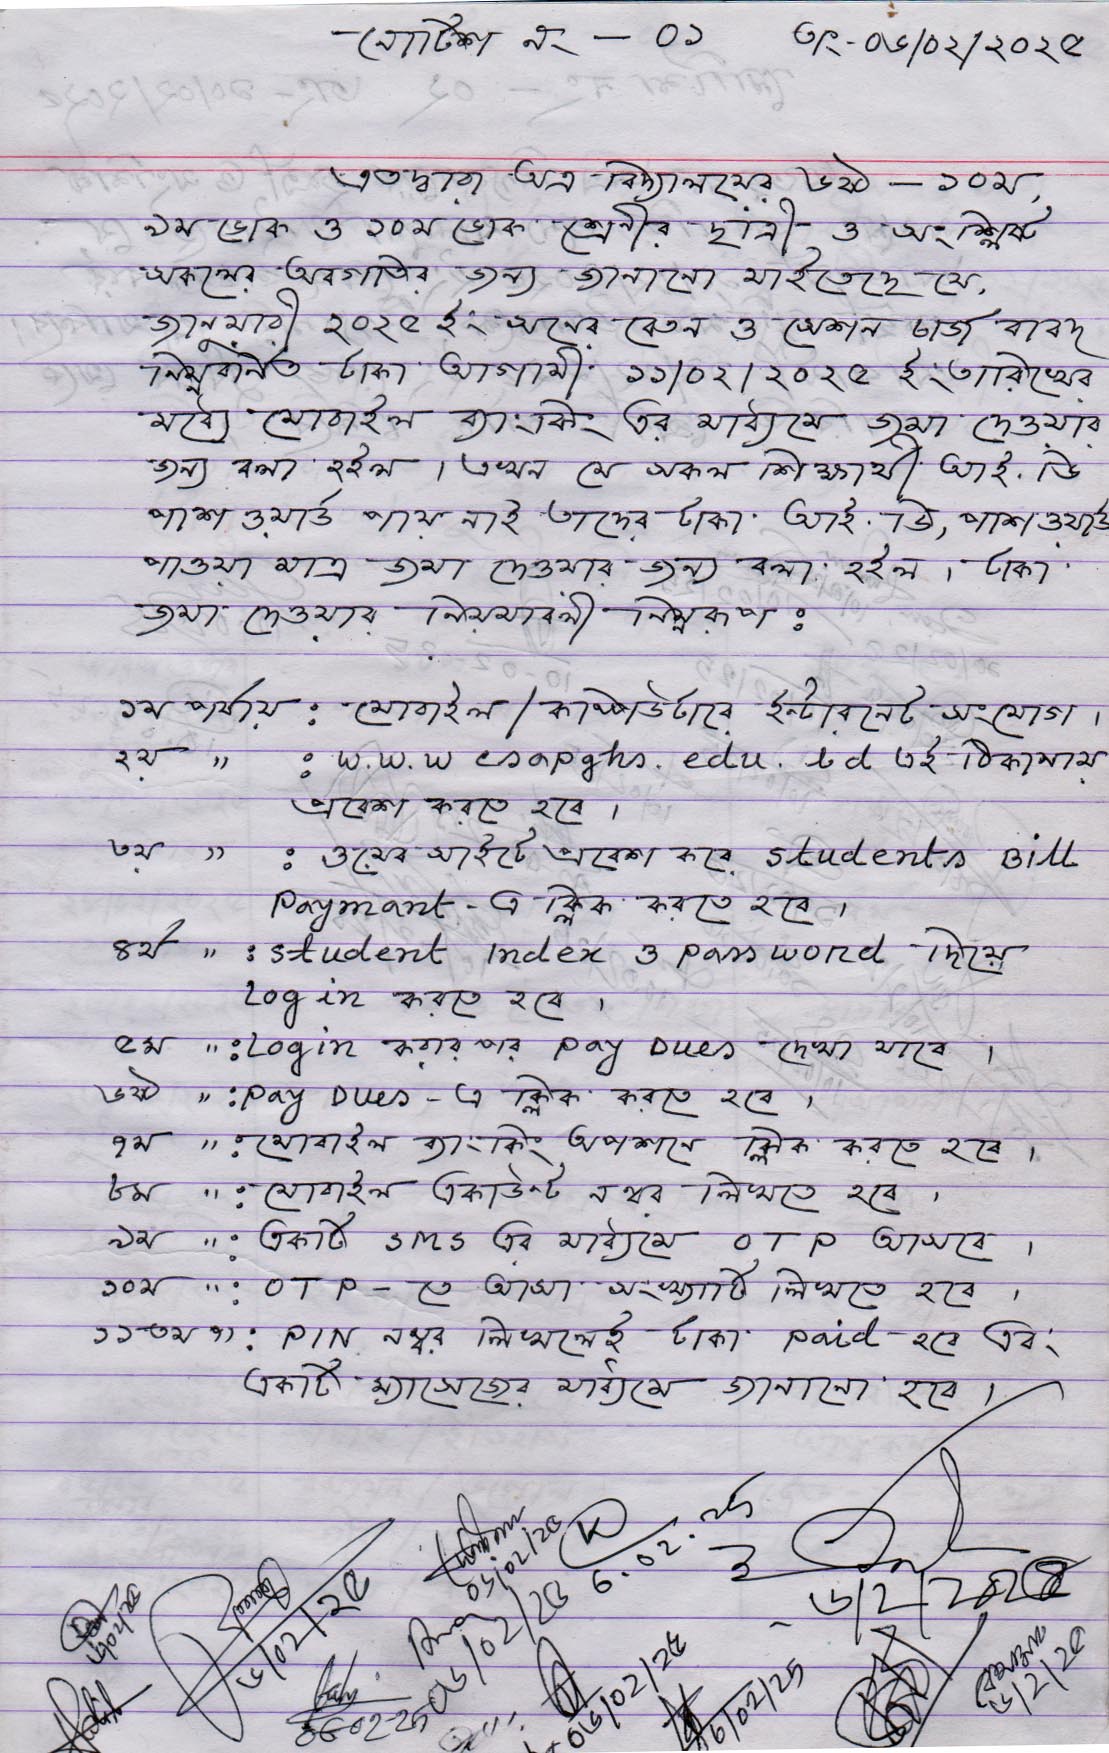 নোটিশ নং — ০১ তাং-০৬/০২/২০২৫
এতদ্বারা অত্র বিদ্যালয়ের ৬ষ্ঠ — ১০ম,
৯ম ভোক ও ১০ম ভোক শ্রেনীর ছাত্রী ও সংশ্লিষ্ট
সকলের অবগতির জন্য জানানো যাইতেছে যে,
জানুয়ারী ২০২৫ ইং সনের বেতন ও সেশন চার্জ বাবদ
নিম্নবর্নিত টাকা আগামী ১১/০২/২০২৫ ইং তারিখের
মধ্যে মোবাইল ব্যাংকিং এর মাধ্যমে জমা দেওয়ার
জন্য বলা হইল। এখন যে সকল শিক্ষার্থী আই. ডি
পাশওয়ার্ড পায় নাই তাদের টাকা আই. ডি, পাশওয়ার্ড
পাওয়া মাত্র জমা দেওয়ার জন্য বলা হইল। টাকা
জমা দেওয়ার নিয়মাবলী নিম্নরূপ :
১ম পর্যায় : মোবাইল / কম্পিউটারে ইন্টারনেট সংযোগ।
২য় " : w.w.w esapghs. edu. bd এই ঠিকানায়
প্রবেশ করতে হবে।
৩য় " : ওয়েব সাইটে প্রবেশ করে students Bill
Paymant-এ ক্লিক করতে হবে।
৪র্থ " : student Index ও password দিয়ে
Log in করতে হবে।
৫ম " : Login করার পর Pay Dues দেখা যাবে।
৬ষ্ঠ " : Pay Dues-এ ক্লিক করতে হবে।
৭ম " : মোবাইল ব্যাংকিং অপশনে ক্লিক করতে হবে।
৮ম " : মোবাইল একাউন্ট নম্বর লিখতে হবে।
৯ম " : একটি SMS এর মাধ্যমে OTP আসবে।
১০ম " : OTP-তে আসা সংখ্যাটি লিখতে হবে।
১১তম " : PIN নম্বর লিখলেই টাকা paid হবে এবং
একটি ম্যাসেজের মাধ্যমে জানানো হবে।
6.02.25
৬/2/2025
৬/02/২৫
০৬/০২/২৫
০৬/০২/২৫
৬/02/25
৬/2/২৫